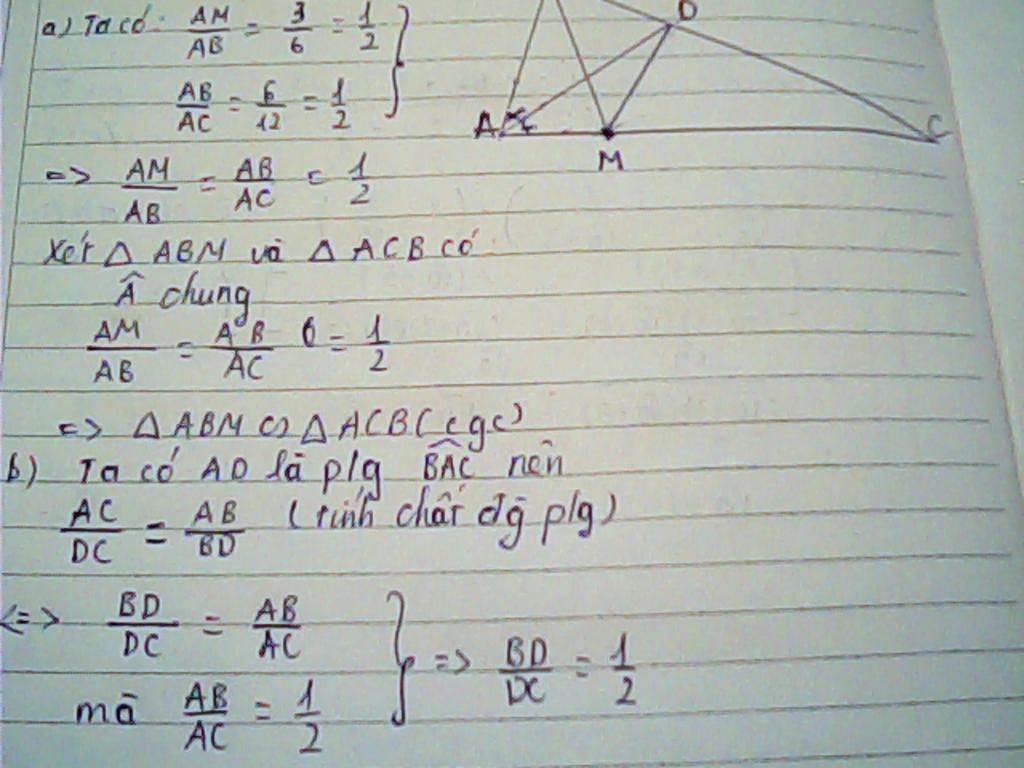 a) Ta có: AM/AB = 3/6 = 1/2 }
AB/AC = 6/12 = 1/2
D
A
C
M
=> AM/AB = AB/AC = 1/2
Xét △ ABM và △ ACB có
Â chung
AM/AB = AB/AC = 1/2
=> △ ABM ∽ △ ACB (cgc)
b) Ta có AD là p/g BAC nên
AC/DC = AB/BD (tính chất đg p/g)
<=> BD/DC = AB/AC } => BD/DC = 1/2
mà AB/AC = 1/2